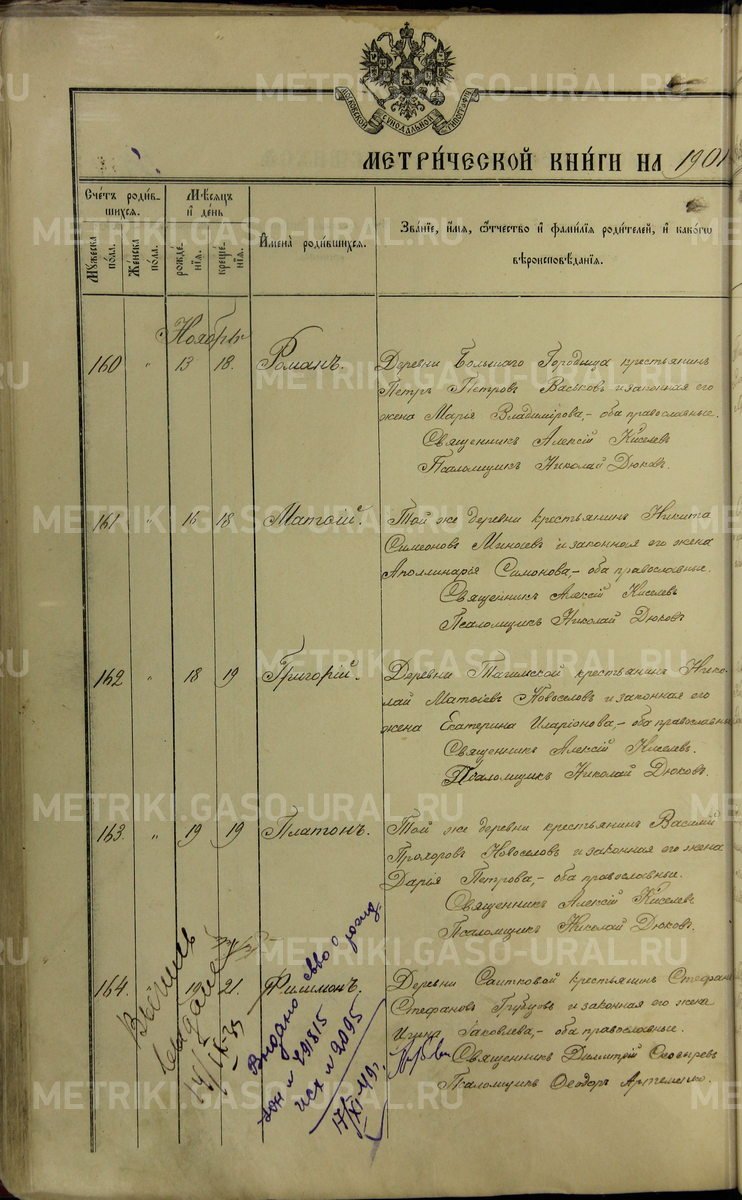 METRIKI.GASO-URAL.RU
МОСКОВСКОЙ СѴНОДАЛЬНОЙ ТИПОГРАФІИ
МЕТРИ́ЧЕСКОЙ КНИ́ГИ НА 1901
Сче́тъ роди́в-
шихся.
Мѣ́сяцъ
и҆ де́нь
И҆мена̀ роди́вшихся.
Зва́нїе, и҆́мя, ѻ҆́тчество и҆ фами́лїя роди́телей, и҆ како́гѡ
вѣроисповѣ́данїя.
Му́жеска по́ла.
Же́нска по́ла.
рожде́нїя.
креще́нїя.
Ноябрь
160 " 13 18. Романъ. Деревни Большаго Городища крестьянинъ
Петръ Петровъ Васьковъ и законная его
жена Марья Владимірова, – оба православные.
Священникъ Алексій Киселевъ
Псаломщикъ Николай Дюковъ.
161 " 16 18 Матѳій. Той же деревни крестьянинъ Никита
Симеоновъ Минѣевъ и законная его жена
Аполлинарья Симонова, – оба православные.
Священникъ Алексій Киселевъ
Псаломщикъ Николай Дюковъ
162 " 18 19 Григорій. Деревни Тагимской крестьянинъ Нико-
лай Матѳіевъ Новоселовъ и законная его
жена Екатерина Иларіонова, – оба православные
Священникъ Алексій Киселевъ.
Псаломщикъ Николай Дюковъ.
163. " 19 19 Платонъ. Той же деревни крестьянинъ Василій
Прохоровъ Новоселовъ и законная его жена
Дарья Петрова, – оба православные.
Священникъ Алексій Киселевъ
Псаломщикъ Николай Дюковъ.
164. 19 21. Филимонъ. Деревни Саитковой крестьянинъ Стефанъ
Стефановъ Грубцовъ и законная его жена
Яковлева, – оба православные.
Священникъ Димитрій
Псаломщикъ Ѳеодоръ Артеменко.
Выдано св-во о рожд.
№ 491815
исх № 2095
17/XI-49 г.